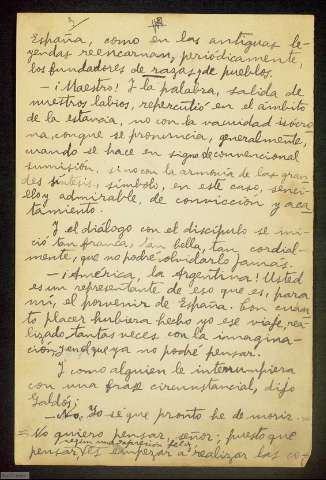 España, como en las antiguas le-
yendas reencarnan, periódicamente,
los fundadores de razas y de pueblos.
— ¡Maestro! Y la palabra, salida de
nuestros labios, repercutió en el ámbito
de la estancia, no con la vacuidad isócro-
na, con que se pronuncia, generalmente,
cuando se hace en signo de convencional
sumisión, si no con la armonía de las gran-
des síntesis, símbolo, en este caso, senci-
llo y admirable, de convicción y aca-
tamiento.
Y el diálogo con el discípulo se ini-
ció tan franca, tan bella, tan cordial-
mente, que no podré olvidarlo jamás.
— ¡América, la Argentina! Usted
es un representante de eso que es, para
mí, el porvenir de España. Con cuán-
to placer hubiera hecho yo ese viaje, rea-
lizado tantas veces con la imagina-
ción, y en el que ya no podré pensar.
Y como alguien le interrumpiera
con una frase circunstancial, dijo
Galdós:
— No. Yo sé que pronto he de morir. —
— No quiero pensar, señor; puesto que
pensar, según una expresión feliz,
es empezar a realizar las co-